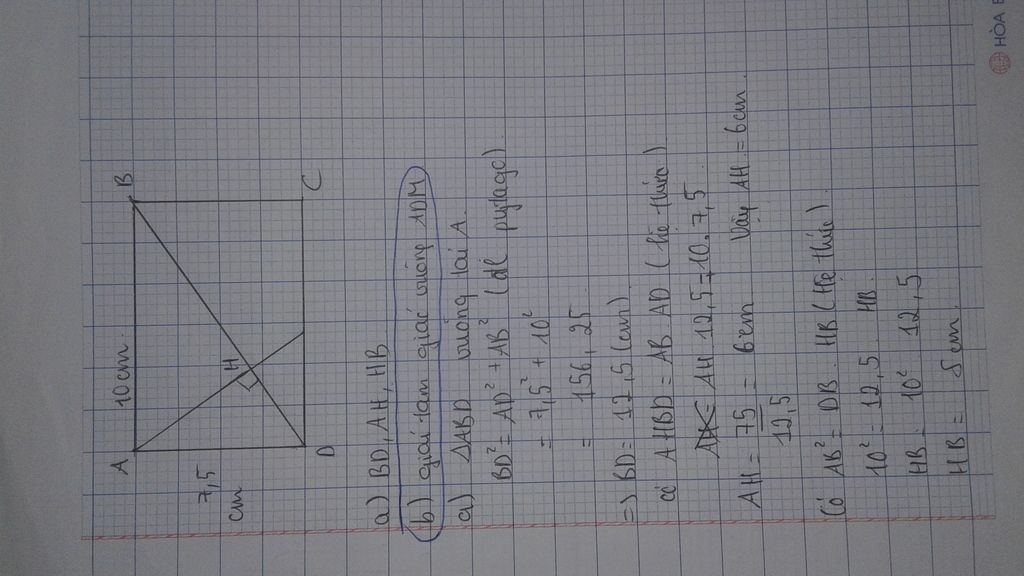 A 10cm B
7,5
cm
H
D C
a) BD, AH, HB
b) giải tam giác vuông ADM
a) ΔABD vuông tại A.
BD² = AD² + AB² (đl pytago)
= 7,5² + 10²
= 156,25
=> BD = 12,5 (cm)
có AHBD = AB AD (hệ thức)
AH 12,5 = 10.7,5
AH = 75/12,5 = 6cm Vậy AH = 6cm
Có AB² = DB . HB (Hệ thức)
10² = 12,5 . HB
HB = 10² 12,5
HB = 8cm
HÒA B